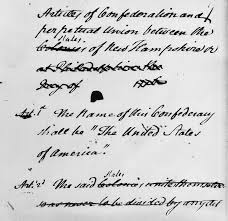 Articles of Confederation and
perpetual Union between the
States
Colonies of New Hampshire &c

Day of 1776
Art. 1st The Name of this Confederacy
shall be "The United States
of America."
States
Art. 2d The said Colonies unite themselves
so as never to be divided by any Act